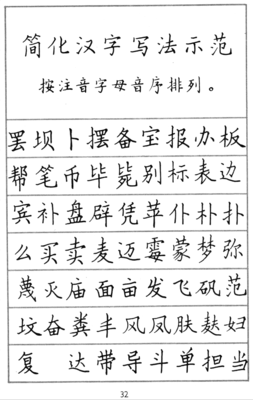 简化汉字写法示范
按注音字母音序排列。
罢坝卜摆备宝报办板
帮笔币毕毙别标表边
宾补盘辟凭苹仆朴扑
么买卖麦迈霉蒙梦弥
蔑灭庙面亩发飞矾范
坟奋粪丰风凤肤麸妇
复 达带导斗单担当
32